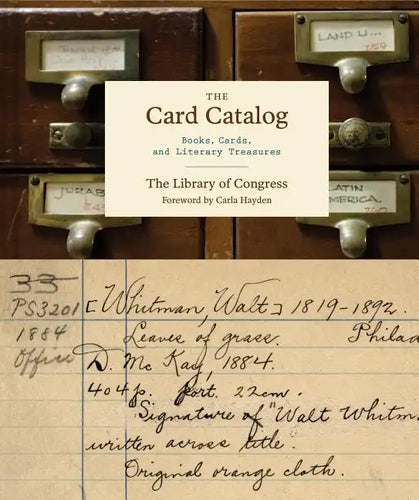 LAND U...
259
THE
Card Catalog
Books, Cards,
and Literary Treasures
The Library of Congress
Foreword by Carla Hayden
JURAB
LATIN
AMERICA.
260
33
PS3201
1884
Office
[Whitman, Walt] 1819-1892.
Leaves of grass. Philad
D. McKay, 1884.
404 p. port. 22 cm.
Signature of "Walt Whitm
written across title.
Original orange cloth.